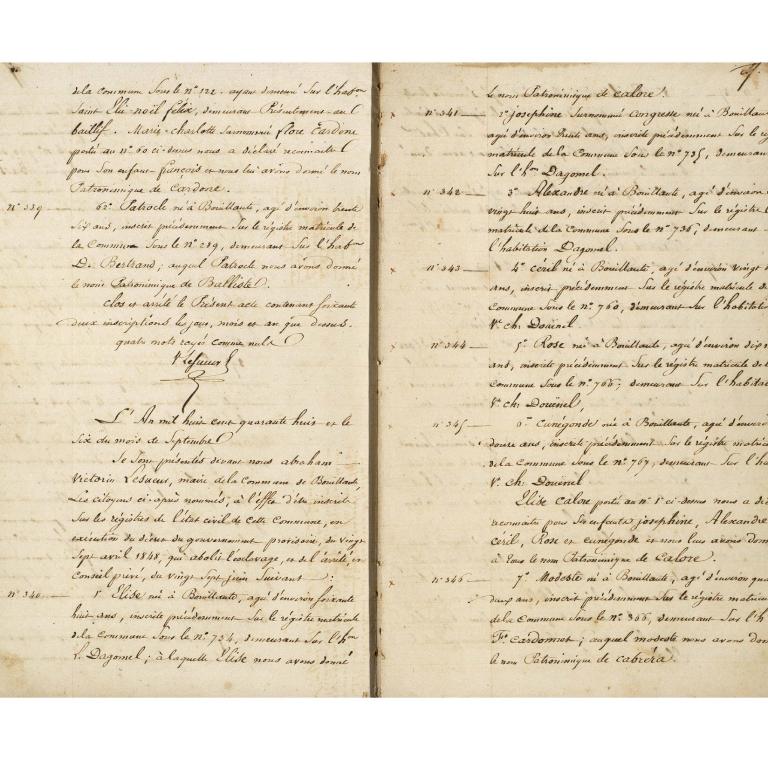 de la commune Sous le n° 122. ayant demeuré Sur l'hab.on
Saint Elie-noël félix, demeurant Présentement au
baillif. Marie-charlotte Surnommée flore Cardone
porté au n° 60 ci-dessus nous a déclaré reconnaître
pour Son enfant françois et nous lui avons donné le nom
Patronimique de Cardore.
n° 339 62° Patrocle né à Bouillante, agé d'environ trente
Six ans, inscrit précédemment Sur le régistre matricule de
la Commune Sous le n° 289, demeurant Sur l'hab.on
D. Bertrand; auquel Patrocle nous avons donné
le nom Patronimique de Balliste.
clos et arrêté le Présent acte contenant soixante
deux inscriptions les jour, mois et an que dessus.
quatre mots rayés comme nuls
V Lesueur
L'An mil huit cent quarante huit et le
Six du mois de Septembre
Se Sont présentés devant nous abraham
Victorin Lesueur, maire de la Commune de Bouillante,
Les citoyens ci-après nommés, à l'effet d'être inscrits
Sur les régistres de l'état civil de Cette Commune, en
exécution du décret du gouvernement provisoire, du vingt
Sept avril 1848, qui abolit l'esclavage, et de l'arrêté en
Conseil privé, du vingt Sept juin Suivant :
n° 340 1° Elise né à Bouillante, agé d'environ soixante
huit ans, inscrite précédemment Sur le régistre matricule
de la Commune Sous le n° 734, demeurant Sur l'h.on
L. Dagomel; à laquelle Elise nous avons donné
le nom Patronimique de calore.
n° 341 2° josephine Surnommé congresse né à Bouillante
agé d'environ trente ans, inscrite précédemment Sur le
matricule de la Commune Sous le n° 735, demeurant
Sur l'h.on Dagomel.
n° 342 3° Alexandre né à Bouillante, agé d'environ
vingt huit ans, inscrit précédemment Sur le régistre
matricule de la Commune Sous le n° 736, demeurant
l'habitation Dagomel.
n° 343 4° céril né à Bouillante, agé d'environ vingt
ans, inscrit précédemment Sur le régistre matricule de
Commune Sous le n° 760, demeurant Sur l'habitation
V.e ch. Douënel
n° 344 5° Rose né à Bouillante, agé d'environ dix
ans, inscrite précédemment Sur le régistre matricule de
Commune Sous le n° 766, demeurant Sur
V.e ch. Douënel,
n° 345 6° Cunégonde né à Bouillante, agé d'environ
douze ans, inscrite précédemment Sur le régistre
de la Commune Sous le n° 767, demeurant Sur
V.e Ch. Douënel
Elise Calore porté au n° 1° ci-dessus nous a
reconnaître pour Ses enfants josephine, Alexandre
céril, Rose et cunégonde et nous leur avons
à Tous le nom Patronimique de Calore.
n° 346 7° Modeste né à Bouillante, agé d'environ
deux ans, inscrit précédemment Sur le régistre
de la Commune Sous le n° 366, demeurant Sur l'h
F.s Cardonnet; auquel modeste nous avons
le nom Patronimique de cabréra.